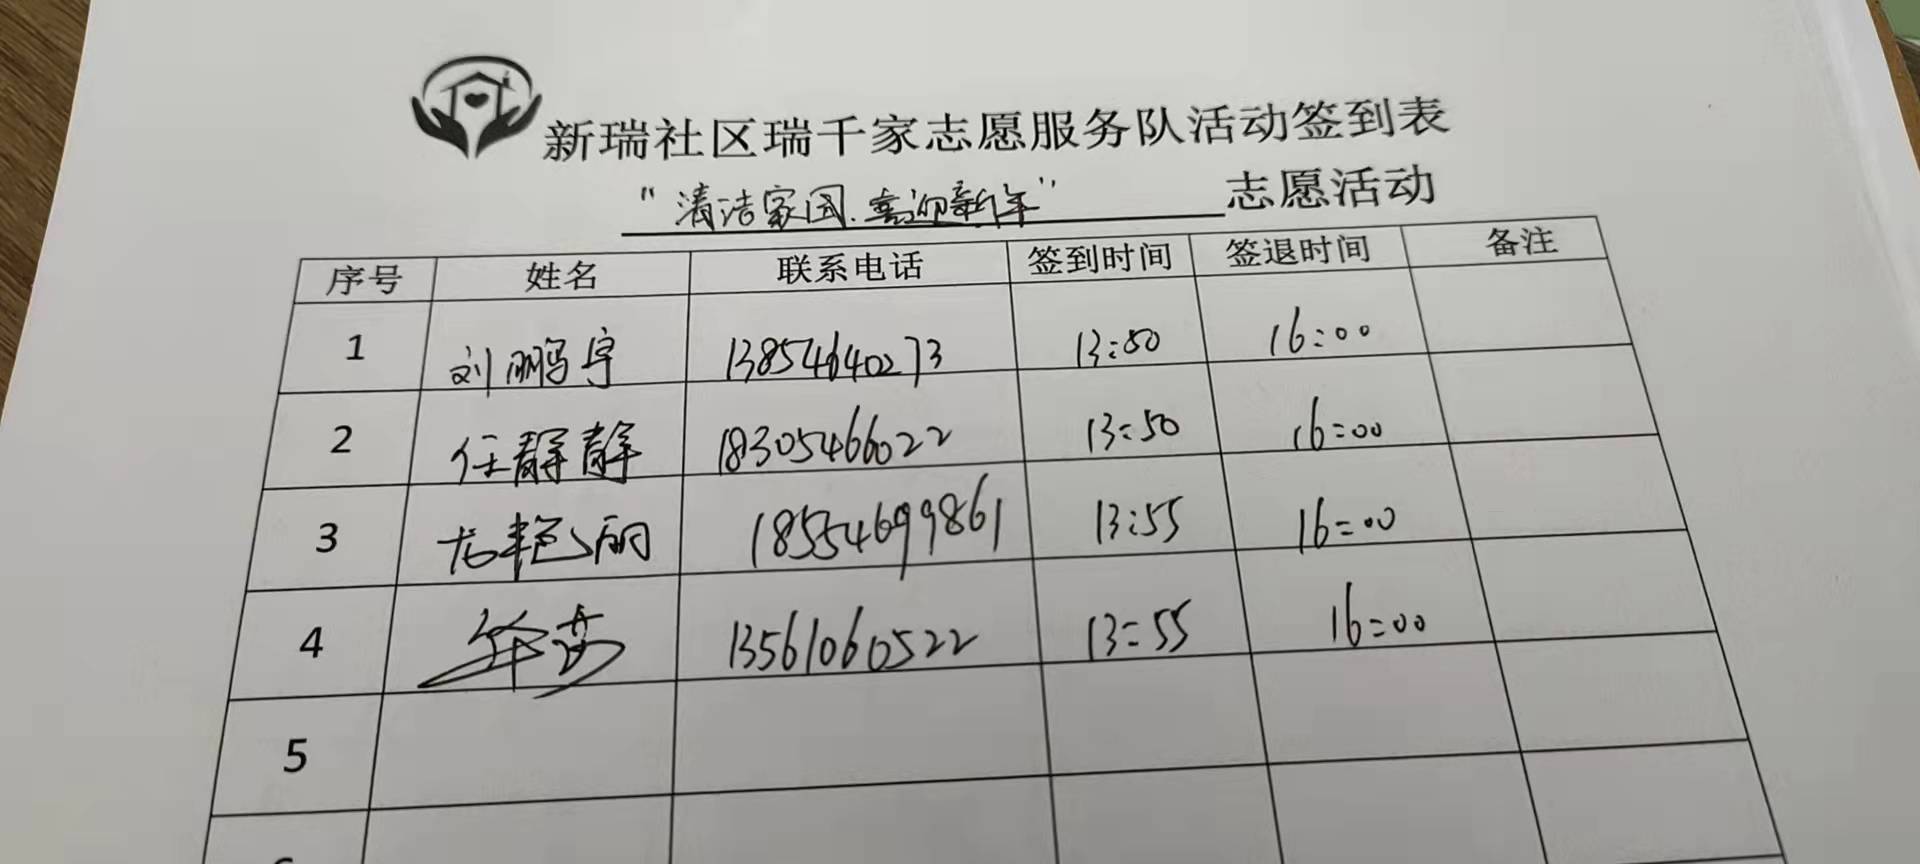 新瑞社区瑞千家志愿服务队活动签到表
"清洁家园.喜迎新年" 志愿活动
序号 姓名 联系电话 签到时间 签退时间 备注
1 刘鹏宇 13854640273 13:50 16:00
2 任静静 18305466022 13:50 16:00
3 尤艳丽 18554699861 13:55 16:00
4 13561060522 13:55 16:00
5